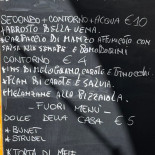 SECONDO + CONTORNO + ACQUA €10
* ARROSTO DELLA VENA
* CARPACCIO DI MANZO AFFUMICATO CON
SALSA ALLA SENAPE E POMODORINI
CONTORNO €4
* INS. DI MELOGRANO, CAROTE E FINOCCHI
* FLAN DI CAROTE E SALVIA
* MELANZANE ALLA PIZZAIOLA
- FUORI MENU -
DOLCE DELLA CASA €5
* BUNET
* STRUDEL
* TORTA DI MELE